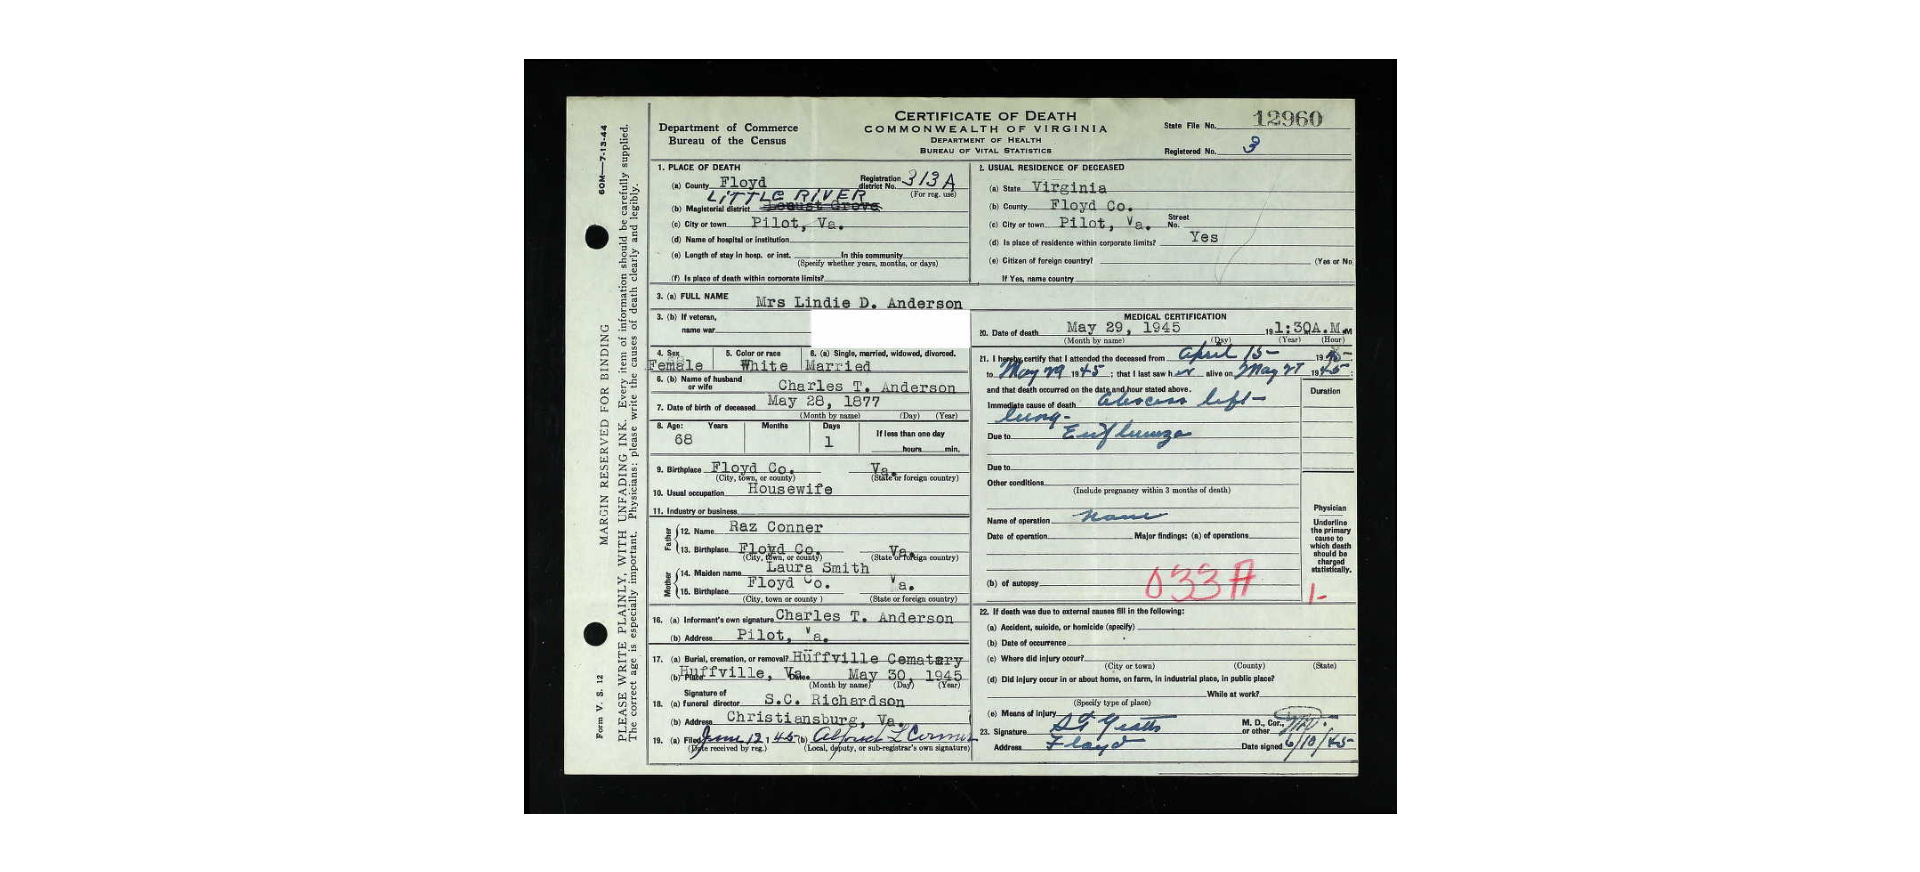 60M—7-13-44
MARGIN RESERVED FOR BINDING
PLEASE WRITE PLAINLY, WITH UNFADING INK. Every item of information should be carefully supplied.
The correct age is especially important. Physicians: please write the causes of death clearly and legibly.
Form V. S. 12
Department of Commerce
Bureau of the Census
CERTIFICATE OF DEATH
COMMONWEALTH OF VIRGINIA
DEPARTMENT OF HEALTH
BUREAU OF VITAL STATISTICS
State File No. 12960
Registered No. 3
1. PLACE OF DEATH
(a) County Floyd Registration district No. 313A (For reg. use)
LITTLE RIVER
(b) Magisterial district Locust Grove
(c) City or town Pilot, Va.
(d) Name of hospital or institution
(e) Length of stay in hosp. or inst. In this community
(Specify whether years, months, or days)
(f) Is place of death within corporate limits?
2. USUAL RESIDENCE OF DECEASED
(a) State Virginia
(b) County Floyd Co.
(c) City or town Pilot, Va. Street No.
(d) Is place of residence within corporate limits? Yes
(e) Citizen of foreign country? (Yes or No
If Yes, name country
3. (a) FULL NAME Mrs Lindie D. Anderson
3. (b) If veteran,
name war
4. Sex Female
5. Color or race White
6. (a) Single, married, widowed, divorced. Married
6. (b) Name of husband or wife Charles T. Anderson
7. Date of birth of deceased May 28, 1877
(Month by name) (Day) (Year)
8. Age: Years Months Days If less than one day
68 1 hours min.
9. Birthplace Floyd Co. Va.
(City, town, or county) (State or foreign country)
10. Usual occupation Housewife
11. Industry or business
Father
12. Name Raz Conner
13. Birthplace Floyd Co. Va.
(City, town, or county) (State or foreign country)
Mother
14. Maiden name Laura Smith
15. Birthplace Floyd Co. Va.
(City, town or county) (State or foreign country)
16. (a) Informant's own signature Charles T. Anderson
(b) Address Pilot, Va.
17. (a) Burial, cremation, or removal? Huffville Cematery
(b) Place Huffville, Va. Date May 30, 1945
(Month by name) (Day) (Year)
18. (a) Signature of funeral director S.C. Richardson
(b) Address Christiansburg, Va.
19. (a) Filed June 12, 1945 (b) L Conner
(Date received by reg.) (Local, deputy, or sub-registrar's own signature)
MEDICAL CERTIFICATION
20. Date of death May 29, 1945 19 1:30A.M. M
(Month by name) (Day) (Year) (Hour)
21. I hereby certify that I attended the deceased from April 15- 1945-
to May 29 1945; that I last saw her alive on May 27 1945;
and that death occurred on the date and hour stated above.
Duration
Immediate cause of death Abscess left-
lung-
Due to Enfluenza
Due to
Other conditions
(Include pregnancy within 3 months of death)
Name of operation none
Date of operation Major findings: (a) of operations
(b) of autopsy
033A
Physician
Underline
the primary
cause to
which death
should be
charged
statistically.
1-
22. If death was due to external causes fill in the following:
(a) Accident, suicide, or homicide (specify)
(b) Date of occurrence
(c) Where did injury occur?
(City or town) (County) (State)
(d) Did injury occur in or about home, on farm, in industrial place, in public place?
While at work?
(Specify type of place)
(e) Means of injury
23. Signature M. D., Cor., or other
Address Floyd Date signed 6/10/45-